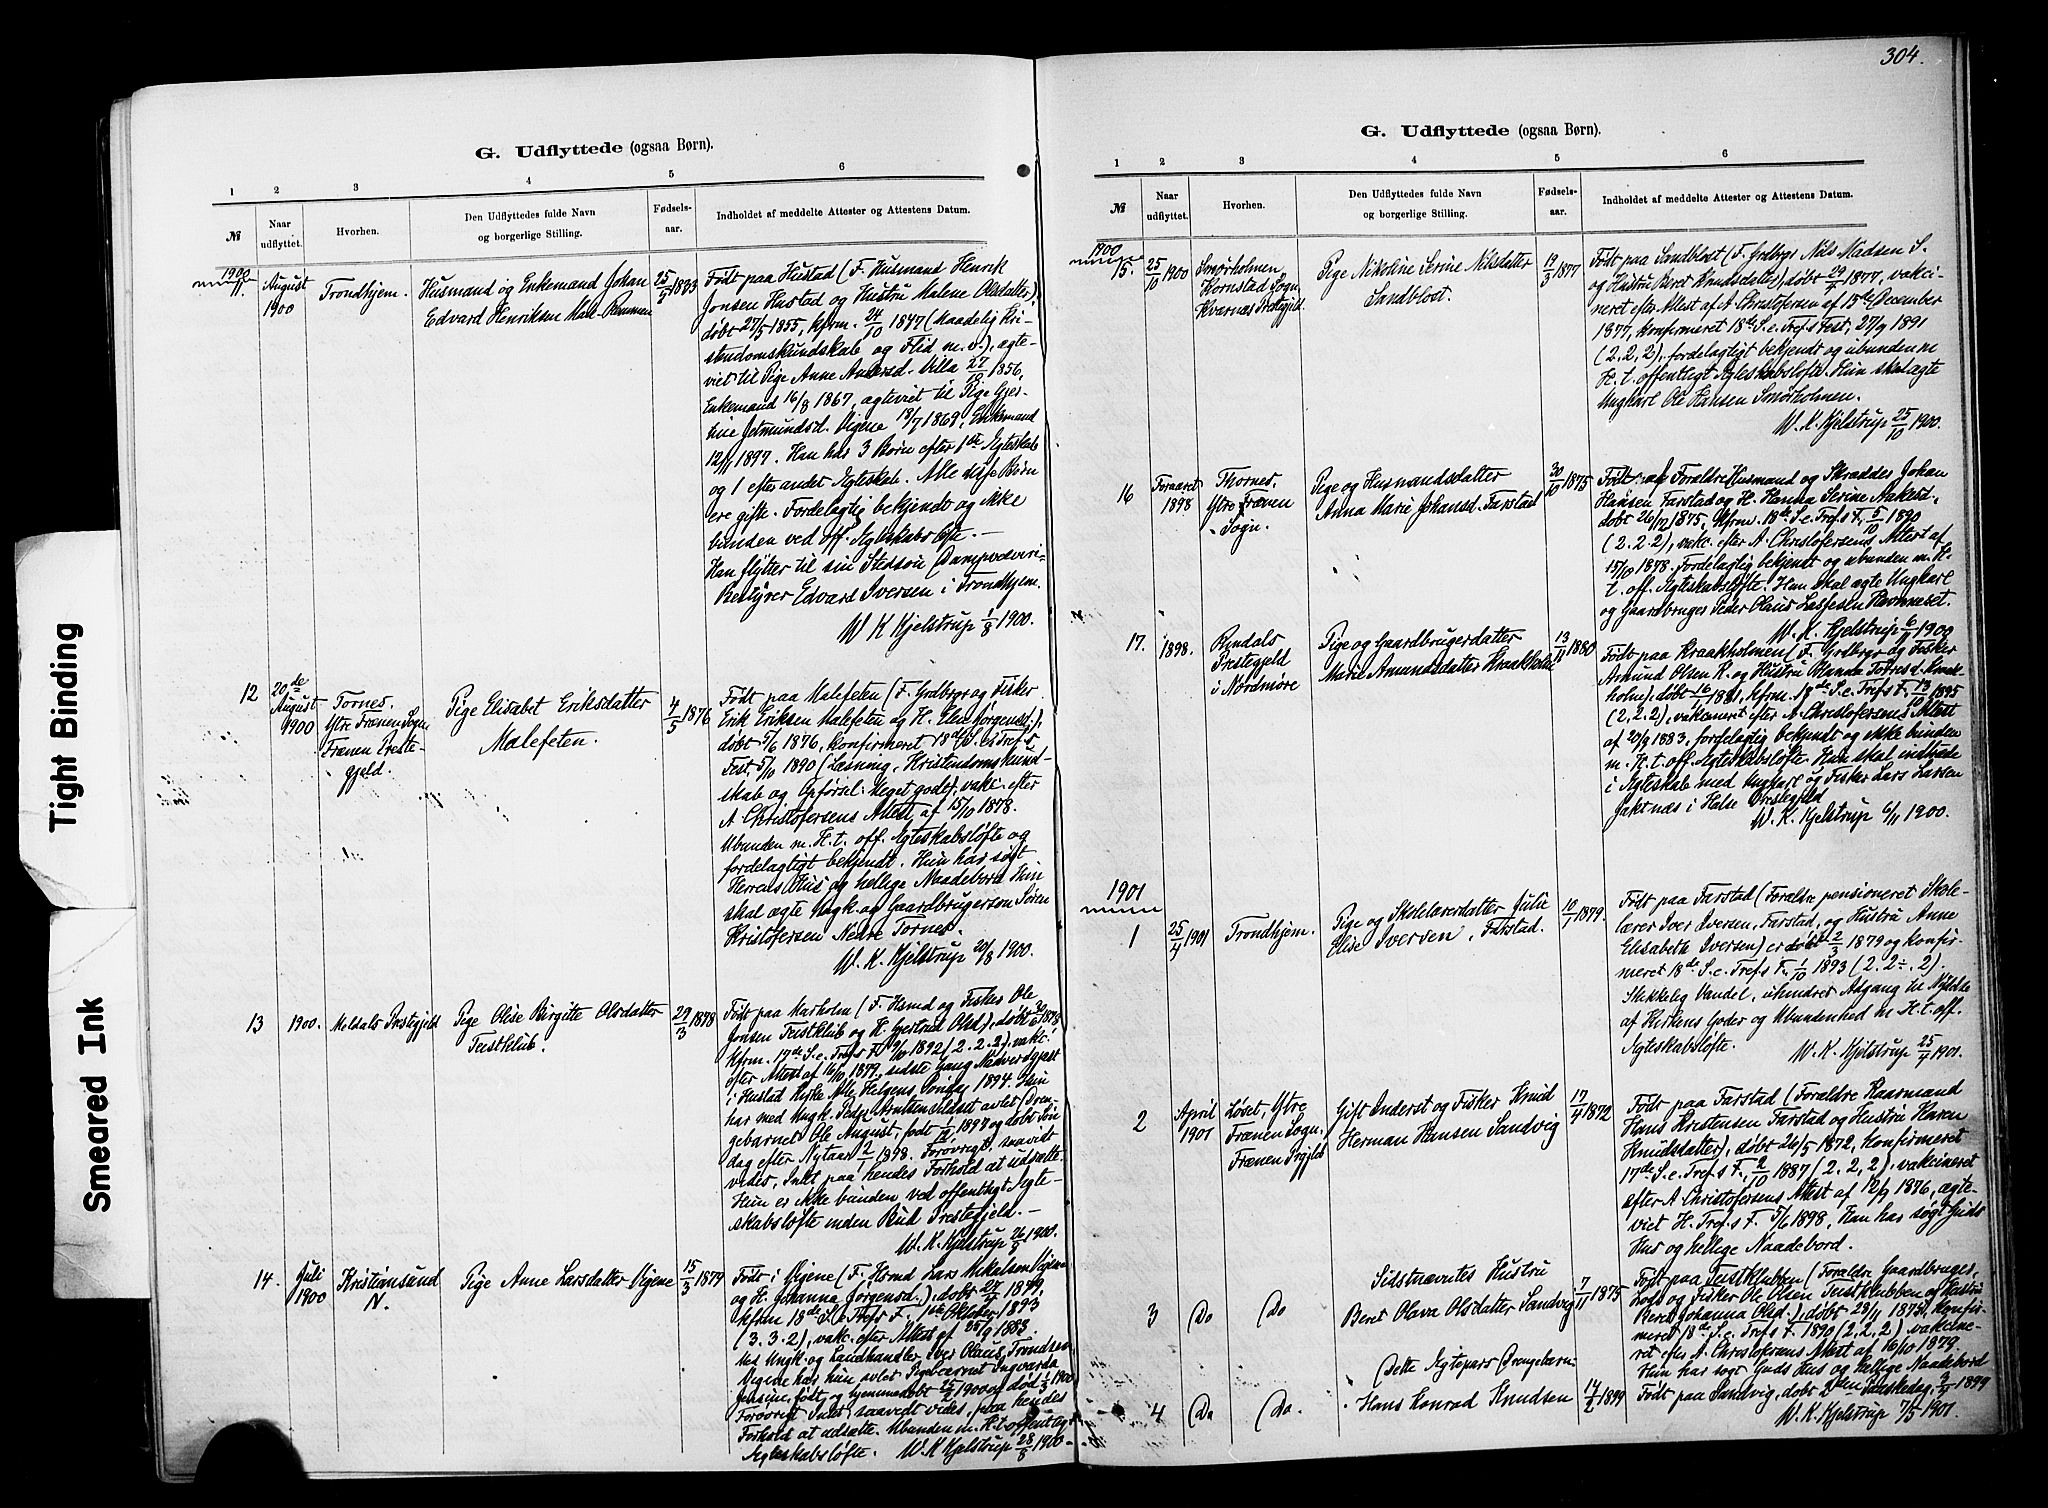 304.
Tight Binding
Smeared Ink
G. Udflyttede (ogsaa Børn).
1 2 3 4 5 6
№
Naar udflyttet.
Hvorhen.
Den Udflyttedes fulde Navn
og borgerlige Stilling.
Fødselsaar.
Indholdet af meddelte Attester og Attestens Datum.
1900
11.
August
1900
Trondhjem.
Husmand og Enkemand Johan
Edvard Henriksen
25/5 1833
Født paa Hustad (F. Husmand Henrik
Jonsen Hustad og Hustru Malene Olsdatter),
døbt 27/5 1855, kfrm. 24/10 1847 (Maadelig Kri-
stendomskundskab og Flid m. v.), ægte-
viet til Pige Anne Andersd. Villa 27/12 1856,
Enkemand 16/8 1867, ægteviet til Pige Gjer-
tine Jetmundsd. Vigene 18/7 1869, Enkemand
12/11 1897. Han har 3 Børn efter 1ste Ægteskab
og 1 efter andet Ægteskab. Alle disse Børn
ere gifte. Fordelagtig bekjendt og ikke
bunden ved off. Ægteskabsløfte. —
Han flytter til sin Stedsøn
Bestyrer Edvard Iversen i Trondhjem.
W. K. Kjelstrup 1/8 1900.
12
20de
August
1900
Tornes.
Ytre Frænen Sogn.
Frænen Preste-
gjeld.
Pige Elisabet Eriksdatter
Malefeten.
4/5 1876
Født paa Malefeten (F. Grdbrgr og Fisker
Erik Eriksen Malefeten og H. Elen Jørgensd.),
døbt 5/6 1876, konfirmeret 18de S. e. Tref.s
Fest, 5/10 1890 (Læsning, Kristendomskund-
skab og Opførsel: Meget godt), vakc. efter
A. Christofersens Attest af 15/10 1878.
Ubunden m. H. t. off. Ægteskabsløfte og
fordelagtigt bekjendt. Hun har søgt
Herrens Hus og hellige Naadebord. Hun
skal ægte Ungk. og Gaardbrugersøn Søren
Kristofersen Nedre Tornes.
W. K. Kjelstrup 20/8 1900.
13
1900.
Meldals Prestegjeld
Pige Olise Birgitte Olsdatter
Teistklub.
29/3 1878
Født paa Marholm (F. Hsmd og Fisker Ole
Jonsen Teistklub og H. Gjertrud Olsd.), døbt 30/6 1878
Kfrm. 17de S. e. Tref.s F. 9/10 1892 (2. 2. 2), vakc.
efter Attest af 16/10 1879, sidste Gang Nadverdgjæst
i Hustad Kirke Alle Helgens Søndag 1894. Hun
har med Ungk. Peder avlet Dren-
gebarnet Ole August, født 1/12 1897 og døbt Søn-
dag efter Nytaar 2/1 1898. Forøvrigt, saavidt
vides, Intet paa hendes Forhold at udsætte.
Hun er ikke bunden ved offentligt Ægte-
skabsløfte inden Bud Prestegjeld. —
W. K. Kjelstrup 26/8 1900.
14.
Juli
1900
Kristiansund
N.
Pige Anne Larsdatter Vigene
15/3 1879
Født i Vigene (F. Hsmd Lars Mikalsen Vigene
og H. Johanna Jørgensd.), døbt 27/4 1879,
kfrm 18de S. e. Tref.s F. 1ste Oktober 1893
(3. 3. 2), vakc. efter Attest af 25/9 1883.
Med Ungk. og Landhandler Iver Olaus Trondsen
Vigene har hun avlet Pigebarnet Ingvarda
Jensine, født og hjemmedøbt 25/2 1900 og død 1/3 1900
Forøvrigt Intet, saavidt vides, paa hendes
Forhold at udsætte. Ubunden m. H. t. offentligt
Ægteskabsløfte. W. K. Kjelstrup 28/8 1900.
G. Udflyttede (ogsaa Børn).
1 2 3 4 5 6
№
Naar udflyttet.
Hvorhen.
Den Udflyttedes fulde Navn
og borgerlige Stilling.
Fødselsaar.
Indholdet af meddelte Attester og Attestens Datum.
1900
15.
25/10 1900
Smørholmen
Kornstad Sogn,
Kvernæs Prestegjeld.
Pige Nikoline Serine Nilsdatter
Sandblost.
19/3 1877
Født paa Sandblost (F. Grdbrgr Nils Madsen S.
og Hustru Beret Knudsdatter), døbt 29/4 1877, vakci-
neret efter Attest af A. Christofersen af 15de December
1877, konfirmeret 18de S. e. Tref.s Fest, 27/9 1891
(2, 2, 2), fordelagtigt bekjendt og ubunden m.
H. t. offentligt Ægteskabsløfte. Hun skal ægte
Ungkarl Ole Hansen Smørholmen.
W. K. Kjelstrup 25/10 1900.
16
Foraaret
1898
Thornes,
Ytre Frænen
Sogn.
Pige og Husmandsdatter
Anna Marie Johansd. Farstad
30/10 1875
Født af Forældre Husmand og Skrædder Johan
Hansen Farstad og H. Hanna Serine Aakesd.,
døbt 26/12 1875, Kfrm. 18de S. e. Tref.s F., 5/10 1890
(2. 2. 2), vakc. efter A. Christofersens Attest af
15/10 1878. Fordelagtig bekjendt og ubunden m. H.
t. off. Ægteskabsløfte. Hun skal ægte Ungkarl
og Gaardbruger Peder Olaus Lassesen
W. K. Kjelstrup 6/11 1900
17.
1898.
Rindals
Prestegjeld
i Nordmøre
Pige og Gaardbrugerdatter
Marie Amundsdatter Kraakholm
13/11 1880
Født paa Kraakholmen (F. Grdbrgr og Fisker
Amund Olsen K. og Hustru Olianna Tostensd. Kraak-
holm), døbt 16/1 1881, kfrm. 18de S. e. Tref.s F., 13/10 1895
(2. 2. 2), vakcineret efter A. Christofersens Attest
af 20/9 1883, fordelagtig bekjendt og ikke bunden
m. H. t. off. Ægteskabsløfte. Hun skal indtræde
i Ægteskab med Ungkarl og Fisker Lars Larsen
Jaktnæs i Halse Prestegjeld
W. K. Kjelstrup 6/11 1900.
1901
1
25/4 1901
Trondhjem.
Pige og Skolelærerdatter Julie
Elise Iversen, Farstad.
10/1 1879.
Født paa Farstad (Forældre pensioneret Skole-
lærer Iver Iversen, Farstad, og Hustru Anne
Elisabeth Iversen) er døbt 2/3 1879 og konfir-
meret 18de S. e. Tref.s F. 1/10 1893 (2. 2÷. 2).
Skikkelig Vandel, uhindret Adgang til Nydelse
af Kirkens Goder og Ubundenhed m. H. t. off.
Ægteskabsløfte.
W. K. Kjelstrup 25/4 1901.
2
April
1901
Løset, Ytre
Frænen Sogn.
Frænen Prgjeld
Gift Inderst og Fisker Knud
Herman Hansen Sandvig
17/4 1872
Født paa Farstad (Forældre Kaarmand
Hans Kristensen Farstad og Hustru Karen
Knudsdatter), døbt 26/5 1872, Konfirmeret
17de S. e. Tref.s F. 2/10 1887 (2, 2, 2), vakcineret
efter A. Christofersens Attest af 12/9 1876, ægte-
viet H. Tref.s F. 5/6 1898, Han har søgt Guds
Hus og hellige Naadebord.
3
Do
Do
Sidstnævntes Hustru
Beret Olava Olsdatter Sandvig
7/11 1875
Født paa Teistklubben (Forældre Gaardbruger,
Lods og Fisker Ole Olsen Teistklubben og Hustru
Beret Johanna Olsd.), døbt 28/11 1875, Konfir-
meret 18de S. e. Tref.s F. 1890 (2, 2, 2), vakcine-
ret efter A. Christofersens Attest af 16/10 1879.
Hun har søgt Guds Hus og hellige Naadebord
4
Do
Do.
Dette Ægtepars Drengebarn:
Hans Konrad Knudsen
14/2 1899
Født paa Sandvig, døbt 2den Paaskedag, 3/4 1899
W. K. Kjelstrup 7/5 1901.